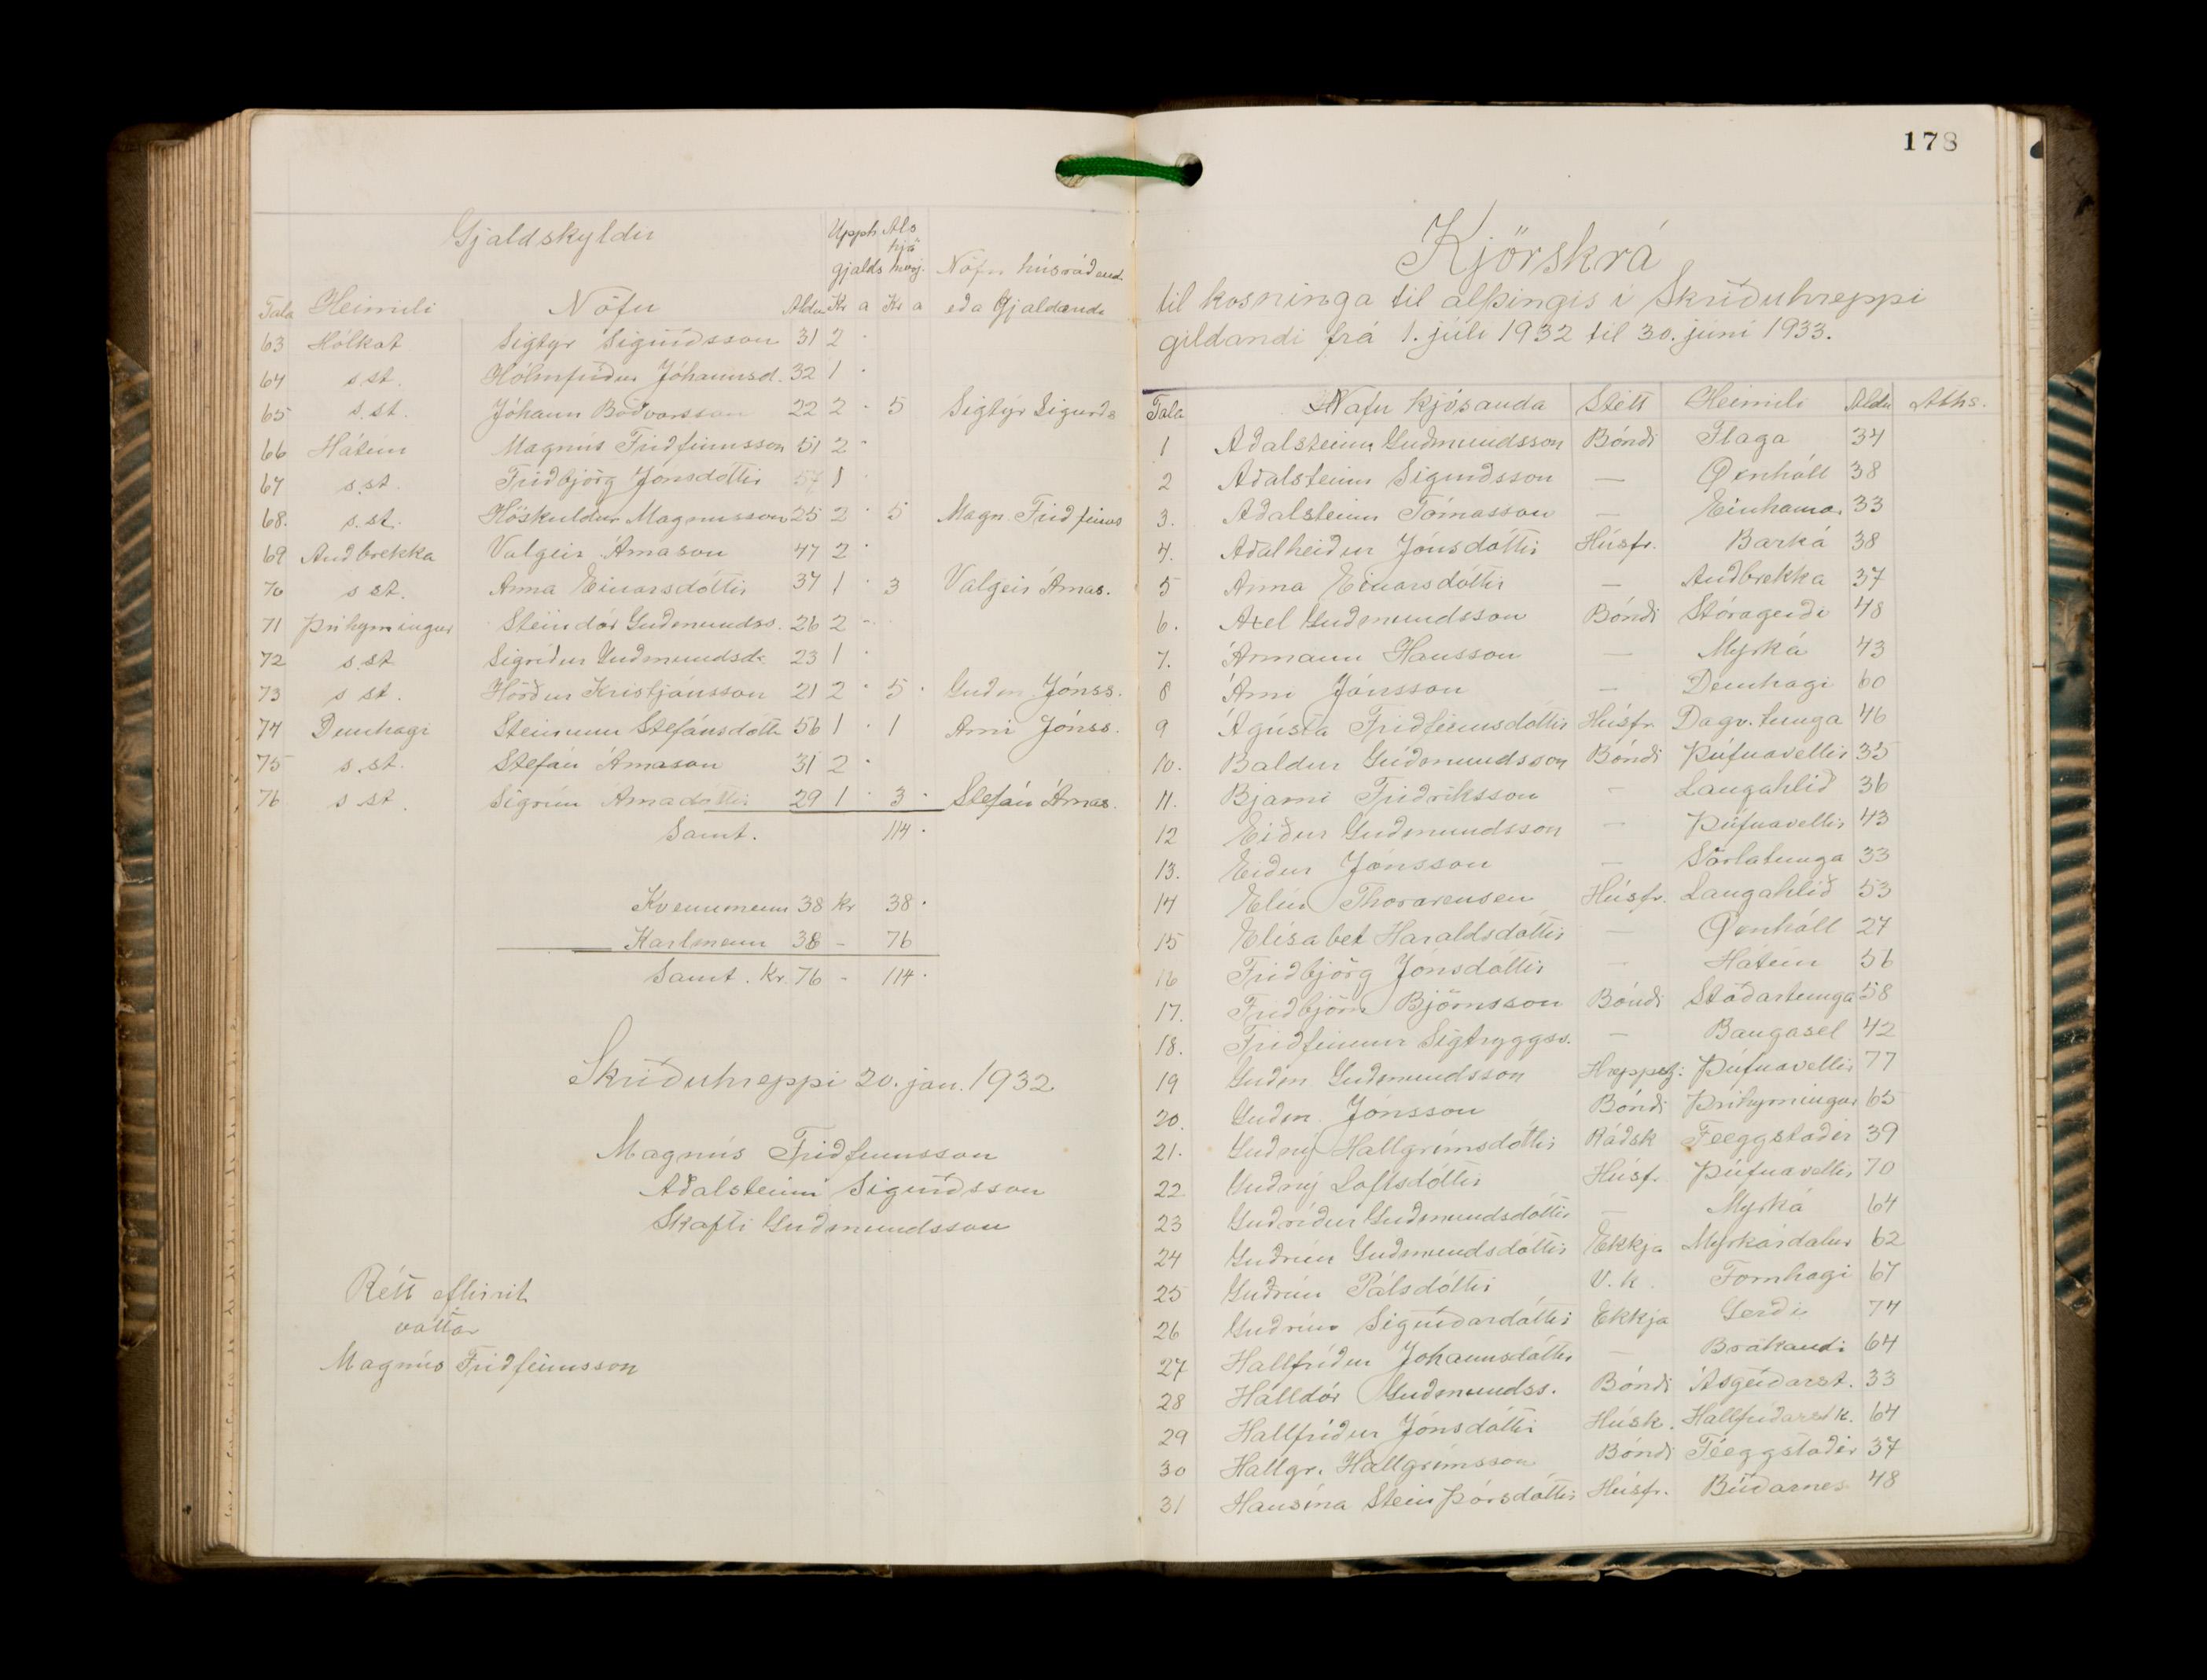 Gjaldskyldir
Upph. gjalds
Als hjá hverj.
Nöfn húsráðend. eða Gjaldenda
Tala Heimili Nöfn Aldur Kr a Kr a
63 Hólkot Sigtýr Sigurðsson 31 2 ·
64 s st. Hólmfríður Jóhannsd. 32 1 ·
65 s. st. Jóhann Böðvarsson 22 2 · 5 Sigtýr Sigurðs
66 Hátún Magnús Friðfinnsson 51 2 ·
67 s. st. Friðbjörg Jónsdóttir 57 1
68. s. st. Höskuldur Magnusson 25 2 · 5 Magn. Friðfinns
69 Auðbrekka Valgeir Árnason 47 2 ·
70 s st. Anna Einarsdóttir 37 1 · 3 Valgeir Árnas.
71 Þríhyrningur Steindór Guðmundss. 26 2 -
72 s. st Sigríður Guðmundsd. 23 1 ·
73 s st. Hörður Kristjánsson 21 2 · 5 · Guðm. Jónss.
74 Dunhagi Steinunn Stefánsdótti 56 1 · 1 Arni Jónss.
75 s. st. Stefán Árnason 31 2 ·
76 s st. Sigrún Árnadóttir 29 1 · 3 · Stefán Árnas.
Samt. 114 ·
Kvennmenn 38 kr 38 ·
Karlmenn 38 - 76
Samt. Kr. 76 - 114 ·
Skriðuhreppi 20. jan. 1932
Magnús Friðfinnsson
Aðalsteinn Sigurðsson
Skafti Guðmundsson
Rétt eftirrit
vottar
Magnús Friðfinnsson
178
Kjörskrá
til kosninga til alþingis i Skriðuhreppi
gildandi frá 1. júlí 1932 til 30. júní 1933.
Tala Nafn kjósanda Stétt Heimili Aldur Aths.
1 Aðalsteinn Guðmundsson Bóndi Flaga 34
2 Aðalsteinn Sigurðsson — Öxnhóll 38
3. Aðalsteinn Tómasson — Einhamar 33
4. Aðalheiður Jónsdóttir Húsfr. Barká 38
5 Anna Einarsdóttir — Auðbrekka 37
6. Axel Guðmundsson Bóndi Stóragerði 48
7. Ármann Hansson — Myrká 43
8 Árni Jónsson — Dunhagi 60
9 Ágústa Friðfinnsdóttir Húsfr. Dagv. tunga 46
10. Baldur Guðmundsson Bóndi Þúfnavellir 35
11. Bjarni Friðriksson - Laugahlíð 36
12 Eiður Guðmundsson — Þúfnavellir 43
13. Eiður Jónsson — Sörlatunga 33
14 Elín Thorarensen Húsfr. Laugahlíð 53
15 Elísabet Haraldsdóttir — Öxnhóll 27
16 Friðbjörg Jónsdóttir — Hátún 56
17. Friðbjörn Björnsson Bóndi Stöðartunga 58
18. Friðfinnur Sigtryggss. — Baugasel 42
19 Guðm Guðmundsson Hreppstj: Þúfnavellir 77
20. Guðm. Jónsson Bóndi Þríhyrningur 65
21. Guðný Hallgrímsdóttir Ráðsk Féeggstaðir 39
22 Guðný Loftsdóttir Húsf. Þúfnavellir 70
23 Guðríður Guðmundsdóttir — Myrká 64
24 Guðrún Guðmundsdóttir Ekkja Myrkárdalur 62
25 Guðrún Pálsdóttir V. k. Fornhagi 67
26 Guðrún Sigurðardóttir Ekkja Gerði 74
27 Hallfríður Johannsdóttir — Brakandi 64
28 Halldór Guðmundss. Bóndi Ásgerðarst. 33
29 Hallfríður Jónsdóttir Húsk. Hallfríðarstk. 64
30 Hallgr. Hallgrímsson Bóndi Féeggstaðir 37
31 Hansína Steinþórsdóttir Húsfr. Búðarnes 48